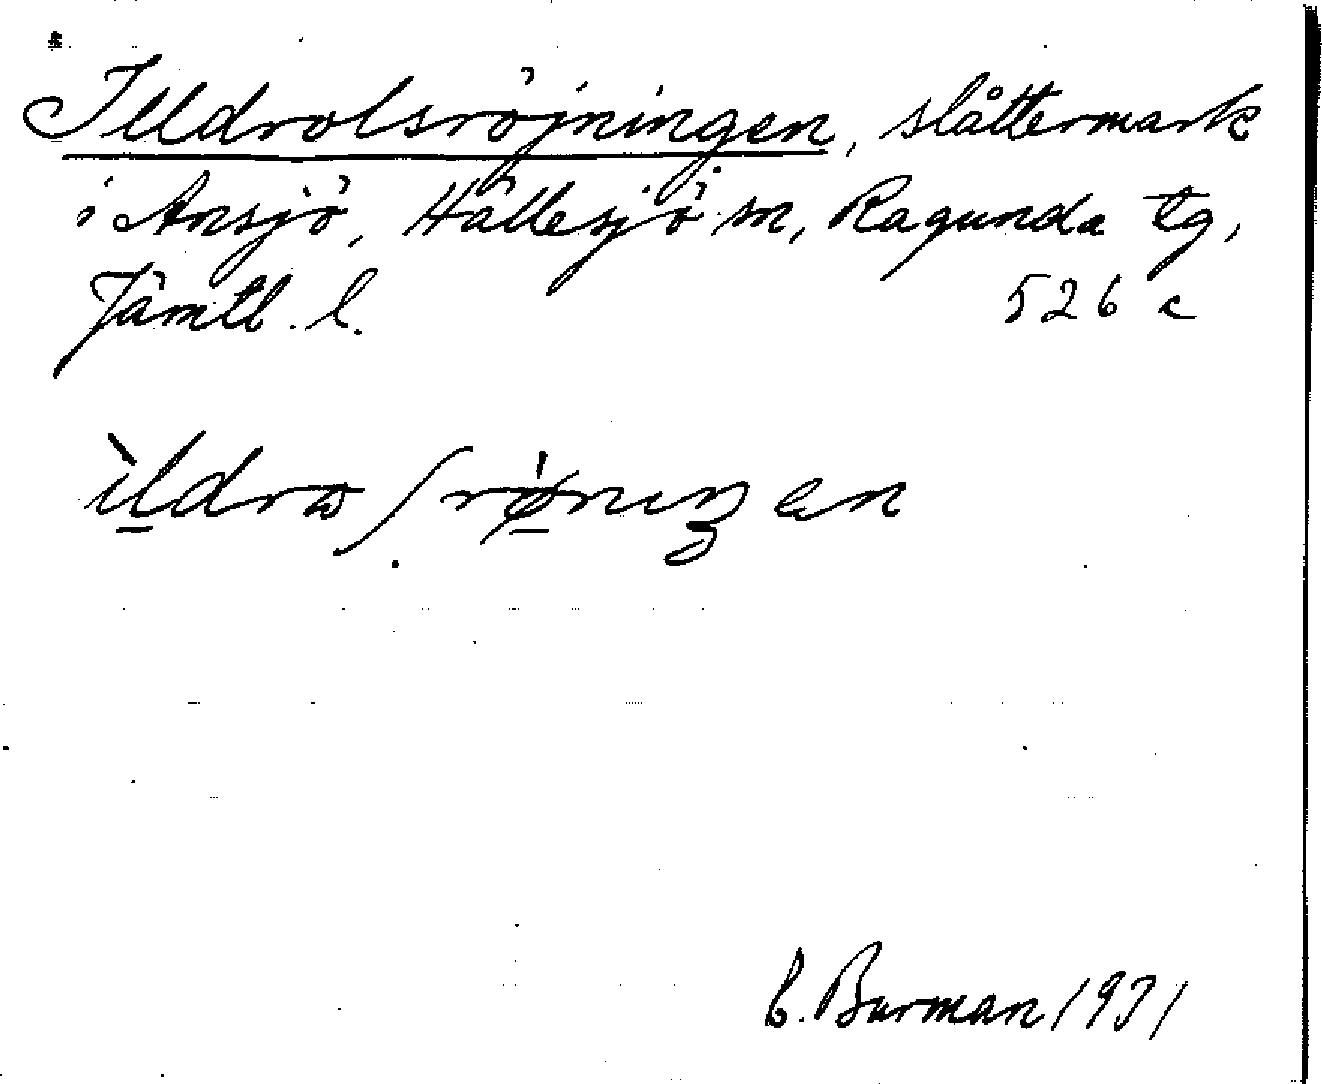 Illdrolsröjningen, slåttermark
i Ansjö, Hällesjö sn, Ragunda tg,
Jämtl. l. 526 c
E. Burman 1931